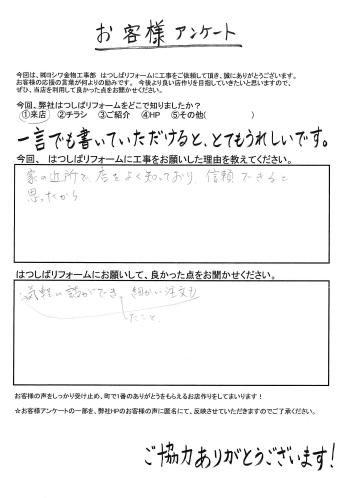 お客様アンケート
今回は、㈱ヨシワ金物工事部　はつしばリフォームに工事をご依頼して頂き、誠にありがとうございます。
お客様の応援の言葉が何よりの励みです。　今後より良い店作りを目指していきたいと思いますので、
ぜひ、当店を利用して良かった点をお聞かせください。
今回、弊社はつしばリフォームをどこで知りましたか？
①来店　②チラシ　③ご紹介　④HP　⑤その他(　　　　)
一言でも書いていただけると、とてもうれしいです。
今回、 はつしばリフォームに工事をお願いした理由を教えてください。
家の近所で店をよく知っており、信頼できると
思ったから
はつしばリフォームにお願いして、良かった点をお聞かせください。
気軽に話ができ、細かい注文も
したこと、
お客様の声をしっかり受け止め、町で1番のありがとうをもらえるお店作りをしてまいります！
☆お客様アンケートの一部を、弊社HPのお客様の声に匿名にて、反映させていただきますのでご了承ください。
ご協力ありがとうございます！